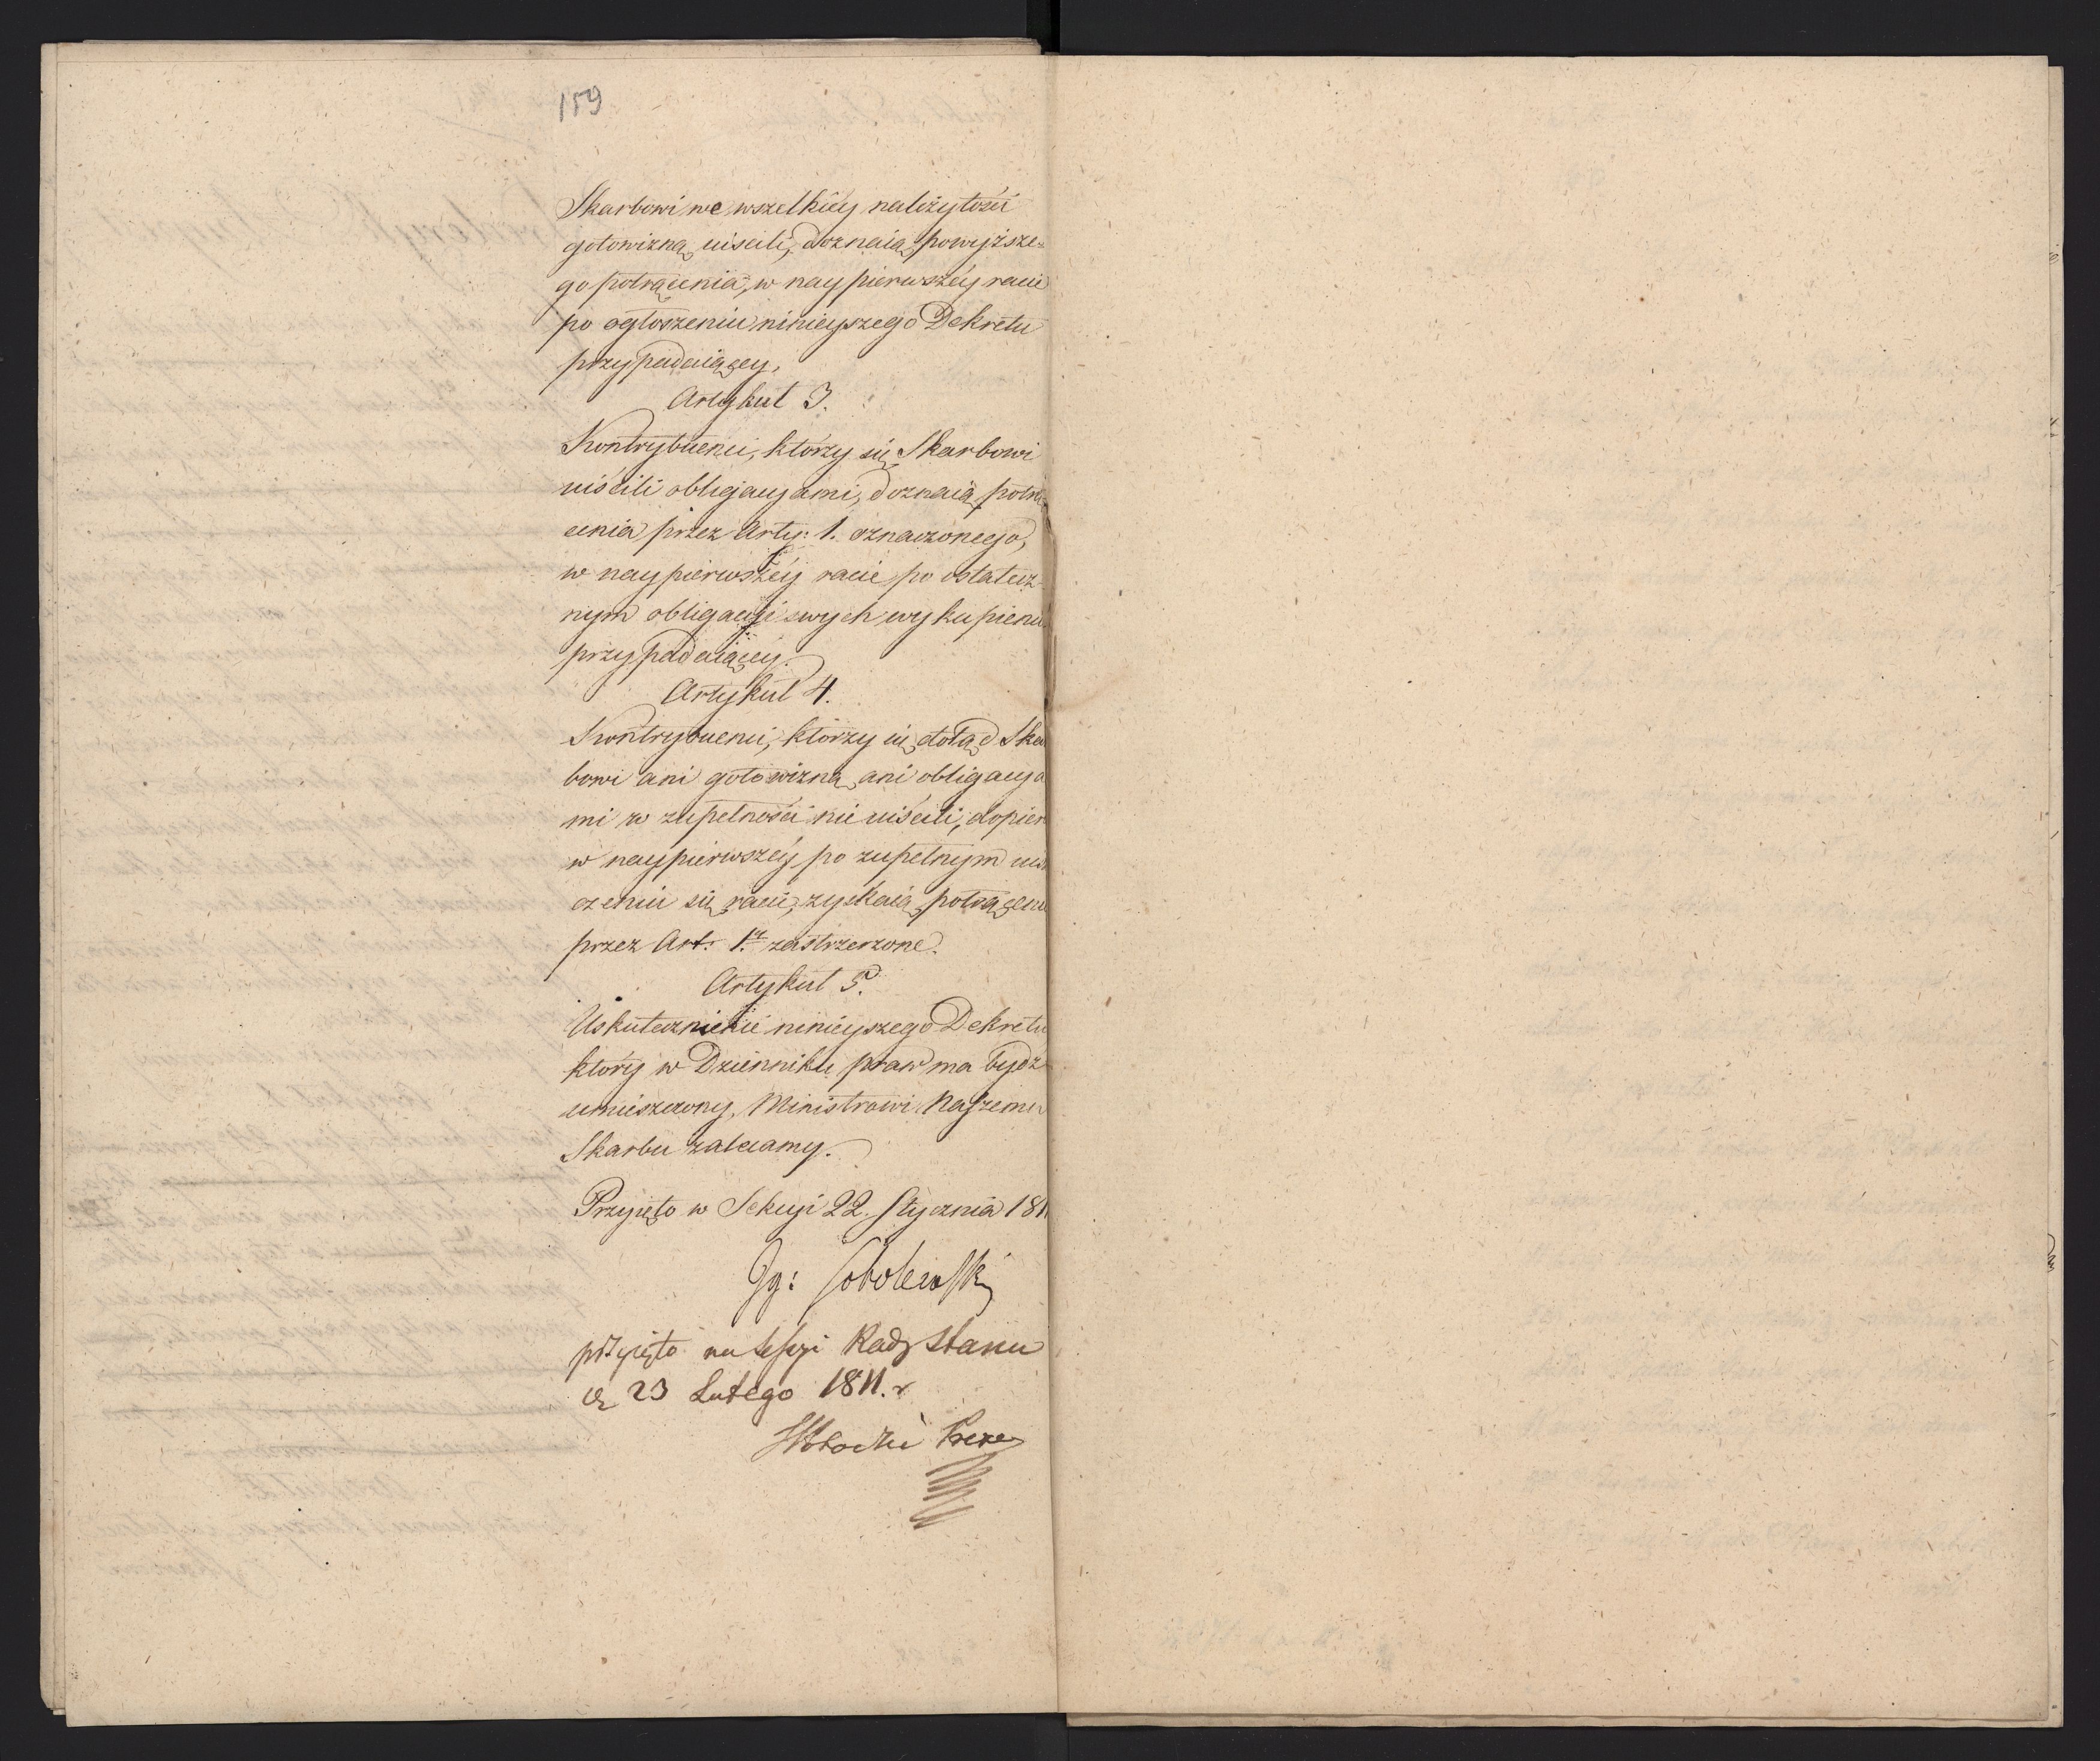 159
Skarbowi we wszelkiey należytości
gotowizną uiscili, doznaią powyższe-
go potrącenia, w naypierwszéy racie
po ogłoszeniu ninieyszego Dekretu
przypadaiącey.
Artykuł 3.
Kontrybuenci, którzy się Skarbowi
uiścili obligacyami, doznaią potrą
cenia przez Arty: 1. oznaczonego,
w naypierwszéy racie po ostatecz
nym obligacyi swych wykupieniu
przypadaiącey.
Artykuł 4.
Kontrybuenci, którzy się dotąd Skar
bowi ani gotowizną ani obligacya
mi w zupełności nie uiścili, dopier
w naypierwszéy po zupełnym uisz
czeniu się racie, zyskaią potrącenie
przez Art: 1. zastrzerzone.
Artykuł 5.
Uskutecznienie ninieyszego Dekretu
który w Dzienniku praw ma bydź
umieszczony, Ministrowi Naszemu
Skarbu zalecamy.
Przyięto w Sekcyi 22. Stycznia 1811
Ig: Sobolewski
przyięto na Sessyi Rady Stanu
d 23 Lutego 1811. r
Prezes